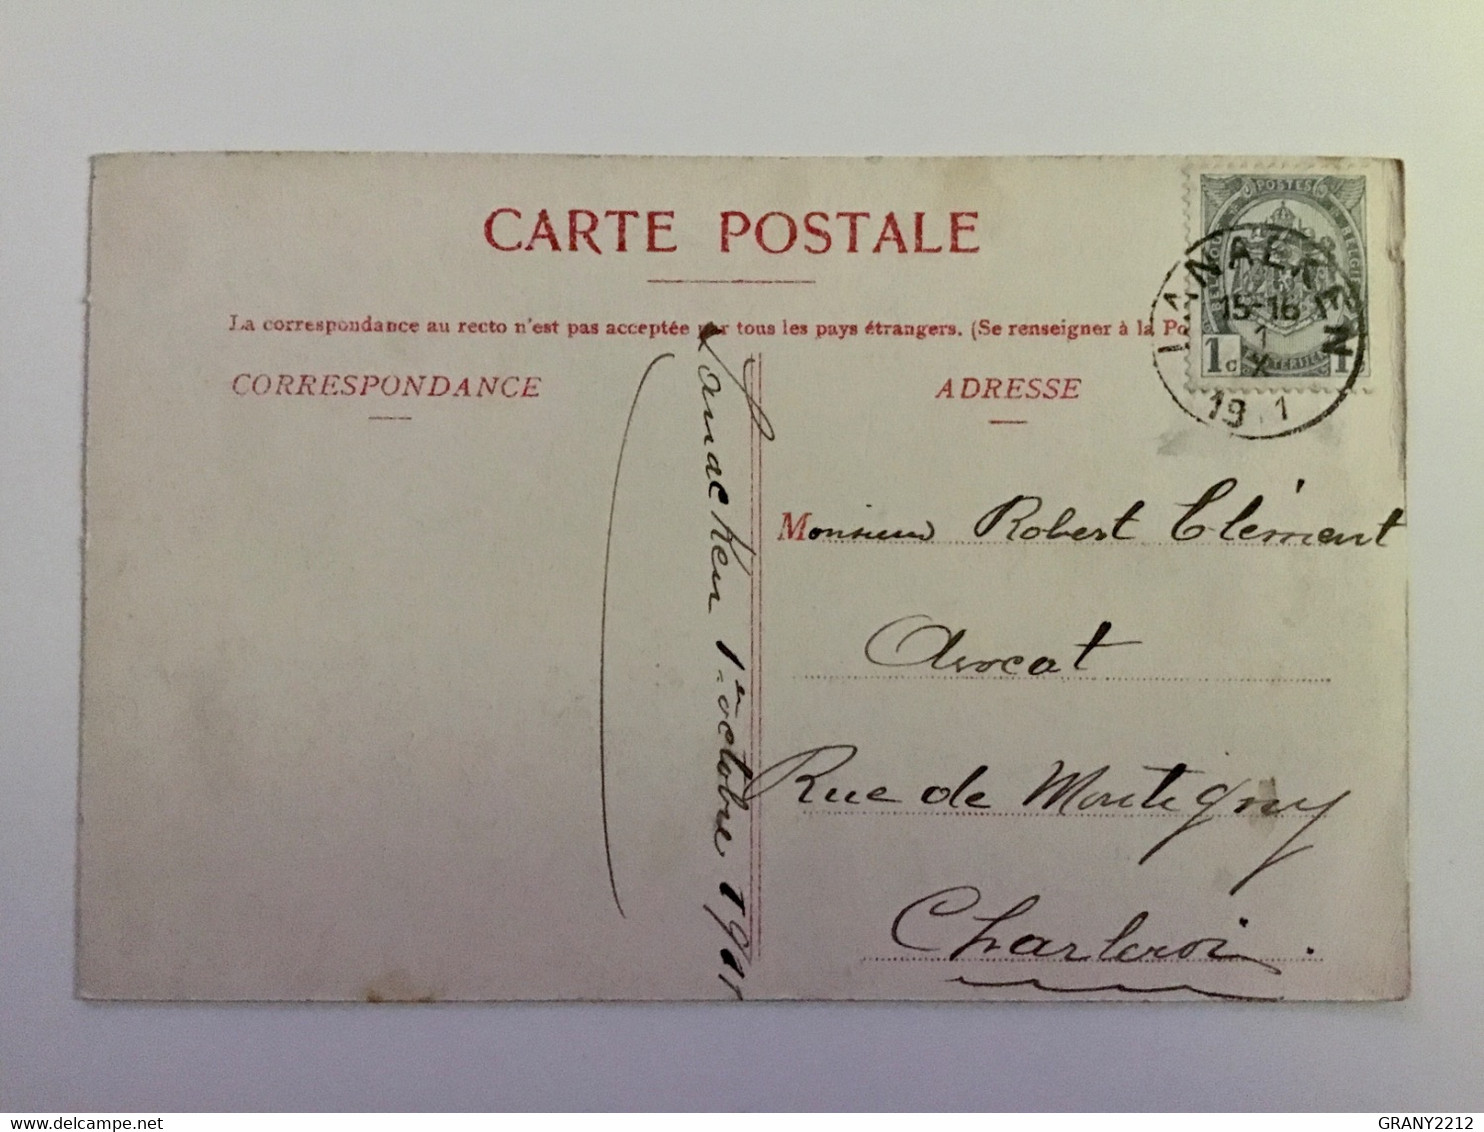 CARTE POSTALE
La correspondance au recto n'est pas acceptée par tous les pays étrangers. (Se renseigner à la Po
CORRESPONDANCE
ADRESSE
POSTES
1c
1
LANAEKEN
15-16
1
X
19 1
Lanaeken 1er octobre 1911
Monsieur Robert Clément
Avocat
Rue de Montigny
Charleroi.
delcampe.net
GRANY2212